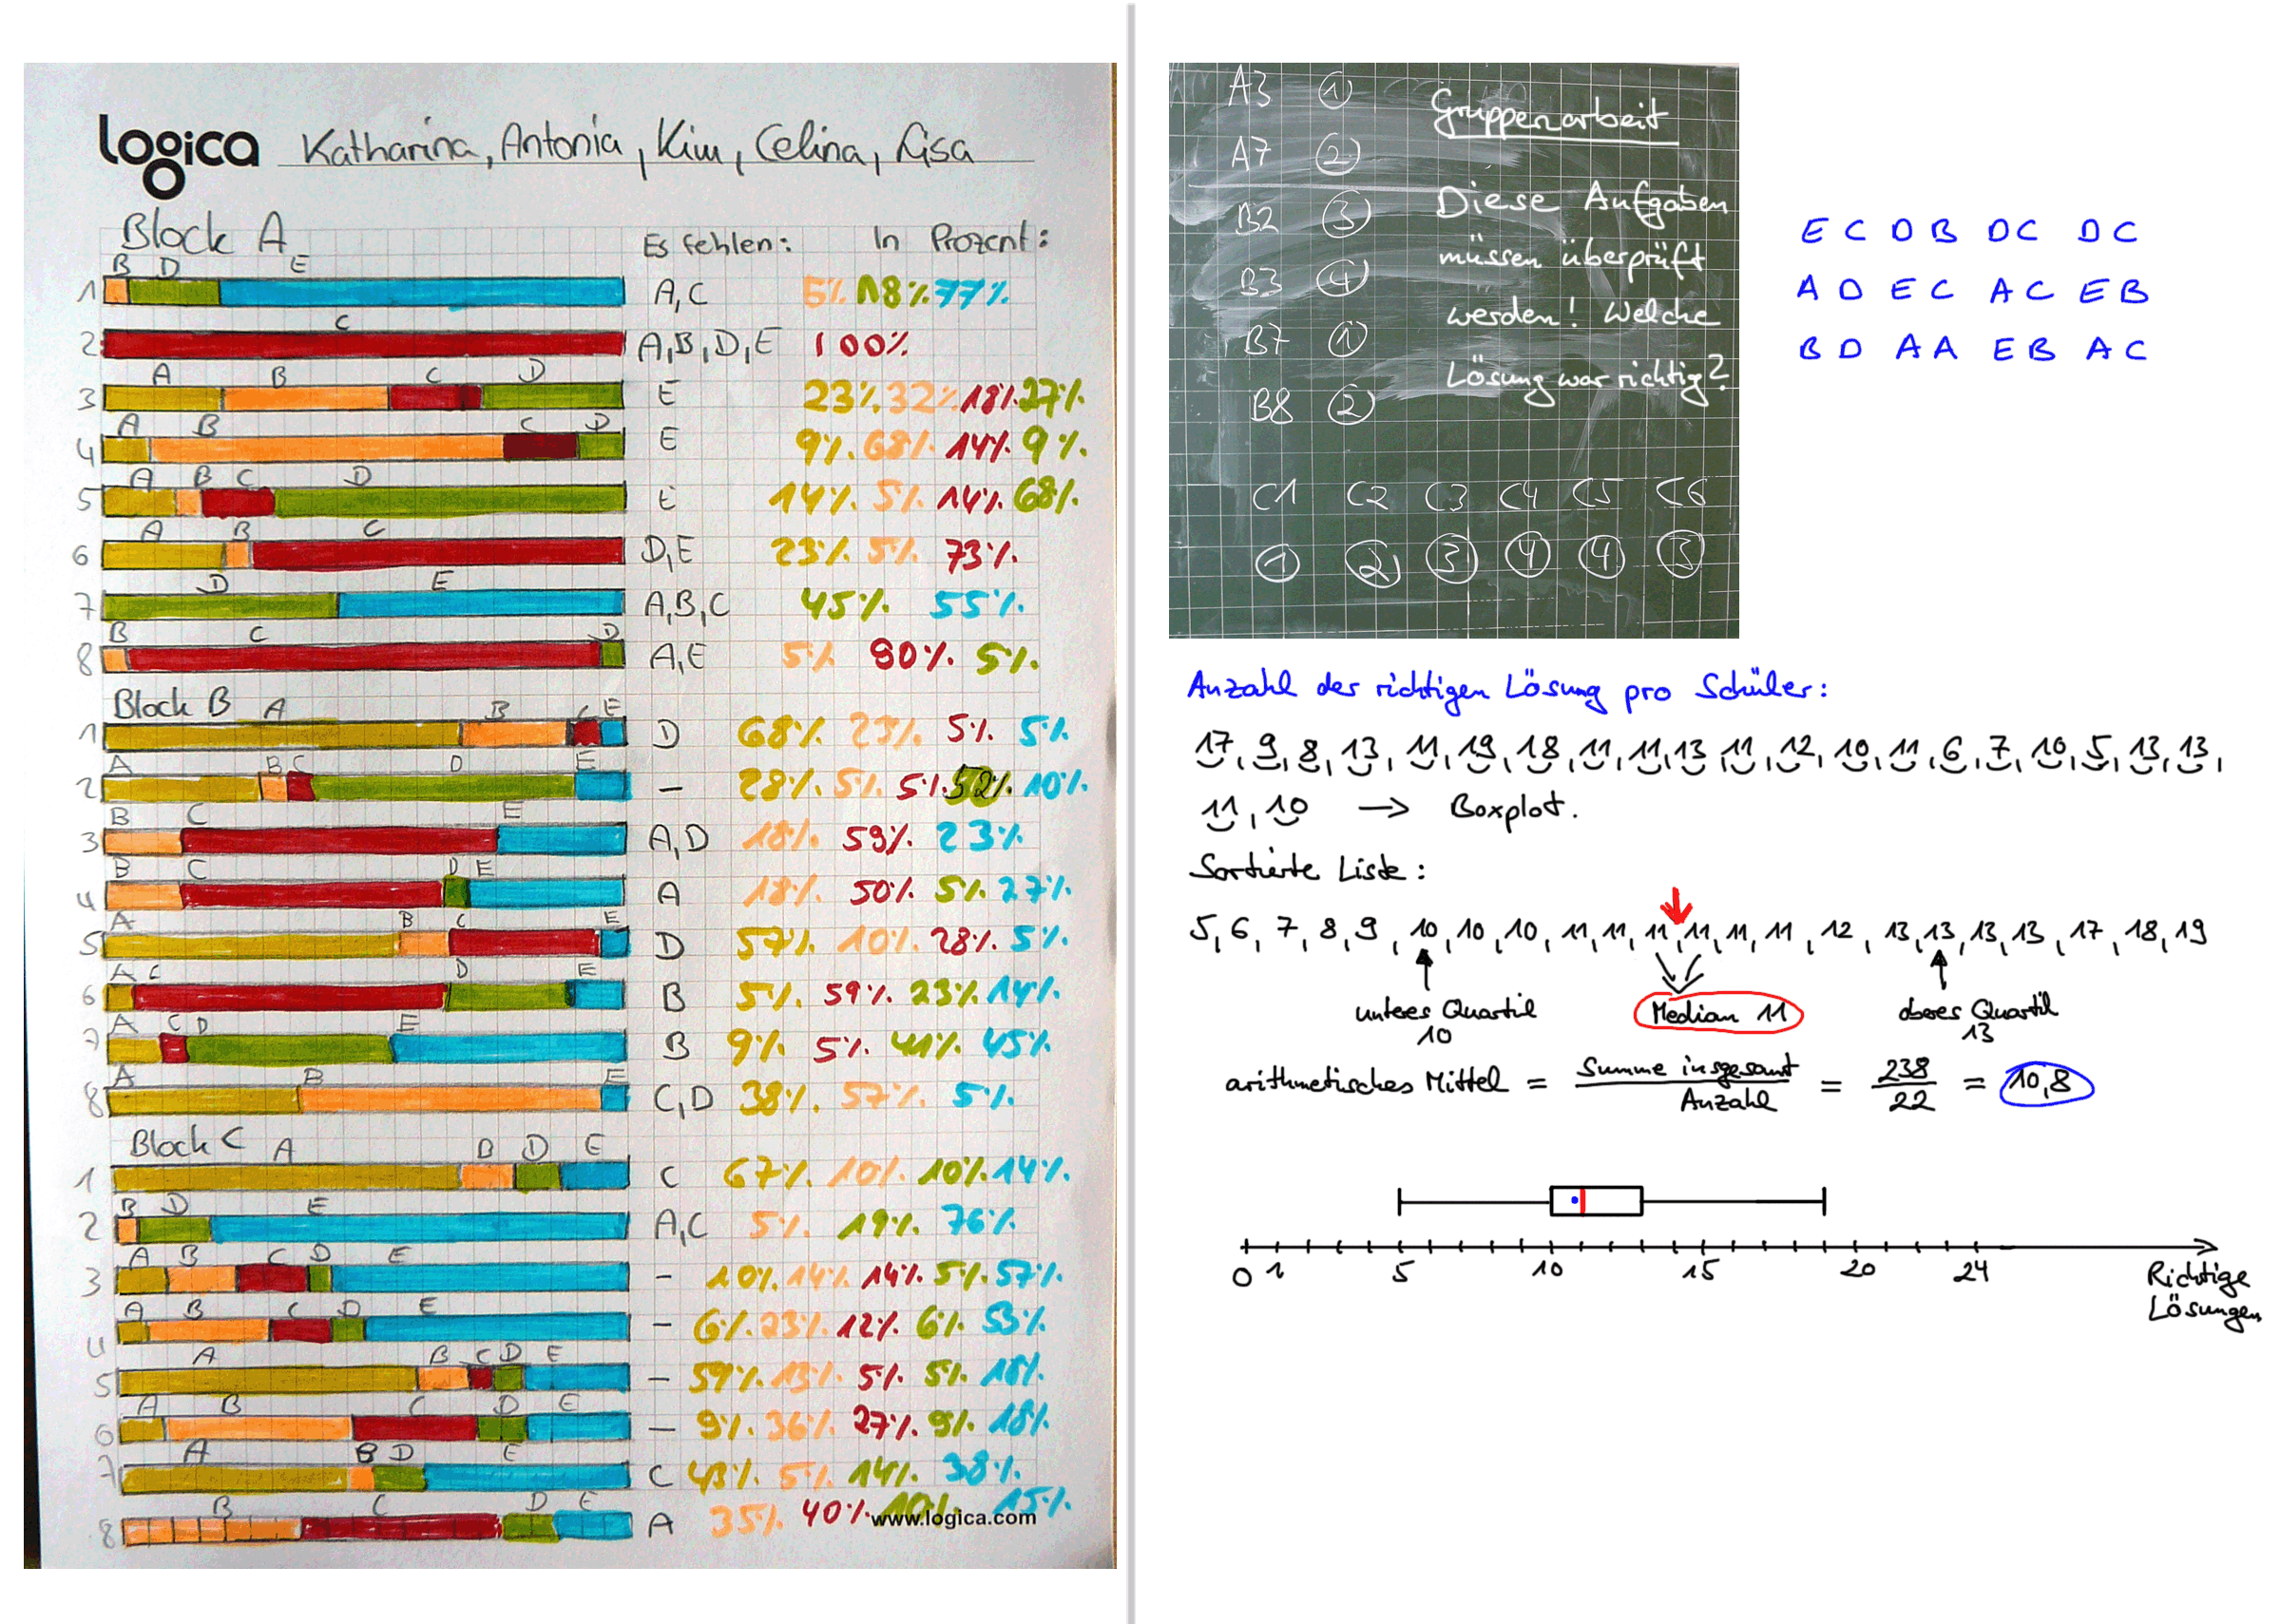 logica Katharina, Antonia, Kim, Celina, Lisa
Block A Es fehlen: In Prozent:
B D E
1 A,C 5% 18% 77%
C
2 A,B,D,E 100%
A B C D
3 E 23% 32% 18% 27%
A B C D
4 E 9% 68% 14% 9%
A B C D
5 E 14% 5% 14% 68%
A B C
6 D,E 23% 5% 73%
D E
7 A,B,C 45% 55%
B C D
8 A,E 5% 90% 5%
Block B
A B C E
1 D 68% 23% 5% 5%
A B C D E
2 – 28% 5% 5% 52% 10%
B C E
3 A,D 18% 59% 23%
B C D E
4 A 18% 50% 5% 27%
A B C E
5 D 57% 10% 28% 5%
A C D E
6 B 5% 59% 23% 14%
A C D E
7 B 9% 5% 41% 45%
A B E
8 C,D 38% 57% 5%
Block C
A B D E
1 C 67% 10% 10% 14%
B D E
2 A,C 5% 19% 76%
A B C D E
3 – 10% 14% 14% 5% 57%
A B C D E
4 – 6% 23% 12% 6% 53%
A B C D E
5 – 59% 13% 5% 5% 18%
A B C D E
6 – 9% 36% 27% 9% 18%
A B D E
7 C 43% 5% 14% 38%
B C D E
8 A 35% 40% 10% 15%
www.logica.com
A3 1
A7 2
B2 3
B3 4
B7 1
B8 2
Gruppenarbeit
Diese Aufgaben
müssen überprüft
werden! Welche
Lösung war richtig?
C1 C2 C3 C4 C5 C6
1 2 3 4 4 3
E C D B D C D C
A D E C A C E B
B D A A E B A C
Anzahl der richtigen Lösung pro Schüler:
17, 9, 8, 13, 11, 19, 18, 11, 11, 13, 11, 12, 10, 11, 6, 7, 10, 5, 13, 13,
11, 10 → Boxplot.
Sortierte Liste:
5, 6, 7, 8, 9, 10, 10, 10, 11, 11, 11, 11, 11, 11, 12, 13, 13, 13, 13, 17, 18, 19
unteres Quartil Median 11 oberes Quartil
10 13
arithmetisches Mittel = Summe insgesamt / Anzahl = 238 / 22 = 10,8
0 1 5 10 15 20 24
Richtige
Lösungen